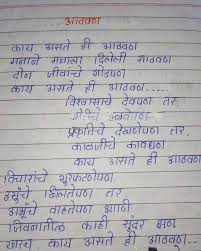 आठवण
काय असते ही आठवण
मनाने मनाला दिलेली साठवण
दोन जीवाचे गोठवण
काय असते ही आठवण.....
विश्वासाचे देवपण तर
प्रकृतिचे देखणेपण तर,
काळजीचे कावळपण
काय असते ही आठवण
विचारांचे
तर
अश्रूंचे वाहतेपण आणि
जिवनातील काही सुंदर क्षण
खरच काय असते ही आठवण...